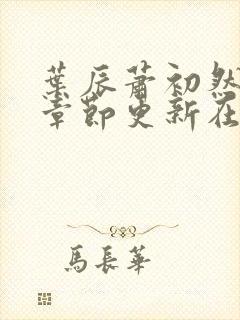 葉辰蕭初然
章節更新在
馬長華